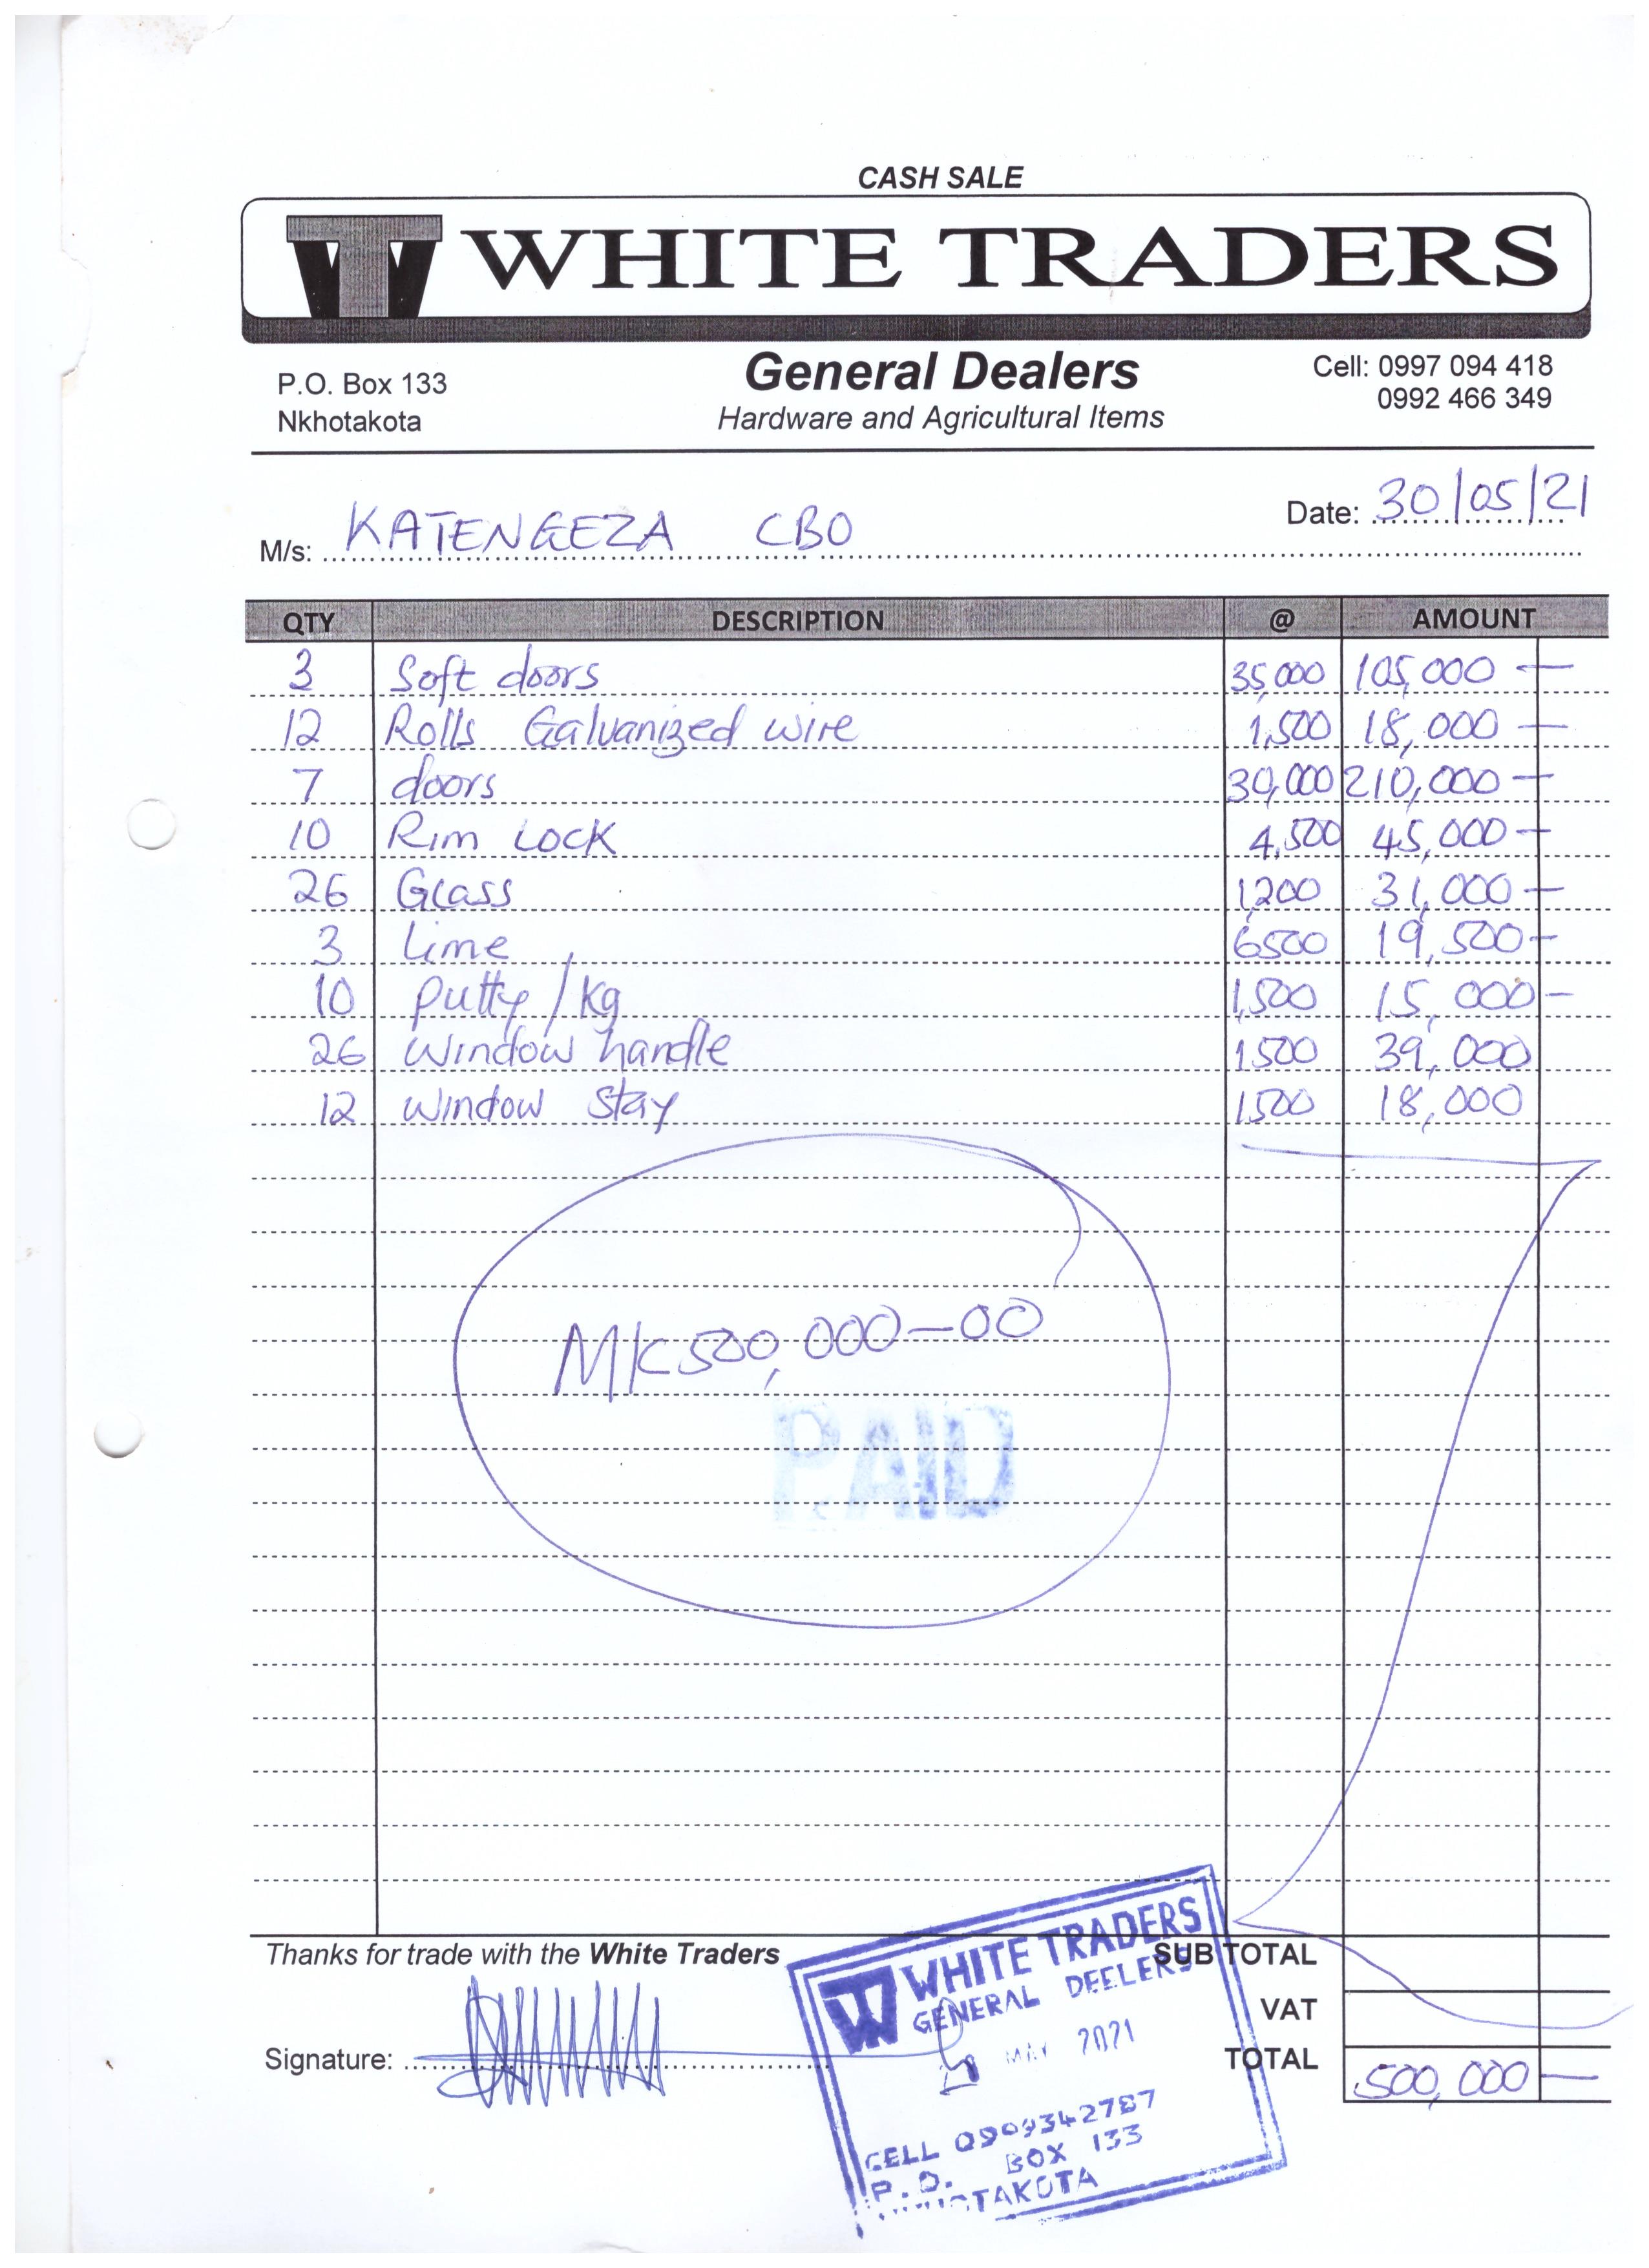 CASH SALE
WHITE TRADERS
P.O. Box 133
Nkhotakota
General Dealers
Hardware and Agricultural Items
Cell: 0997 094 418
0992 466 349
Date: 30/05/21
M/s: KATENGEZA CBO
QTY DESCRIPTION @ AMOUNT
3 Soft doors 35,000 105,000 —
12 Rolls Galvanized wire 1,500 18,000 —
7 doors 30,000 210,000 —
10 Rim Lock 4,500 45,000 —
26 Glass 1,200 31,000 —
3 Lime 6500 19,500 —
10 putty/kg 1,500 15,000 —
26 Window handle 1500 39,000
12 Window stay 1500 18,000
MK500,000—00
PAID
Thanks for trade with the White Traders
SUB TOTAL
VAT
TOTAL 500,000 —
Signature:
WHITE TRADERS
GENERAL DEELERS
MAY 2021
CELL 0909342787
P.O. BOX 133